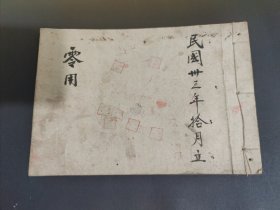 民國卅三年拾月立
零用